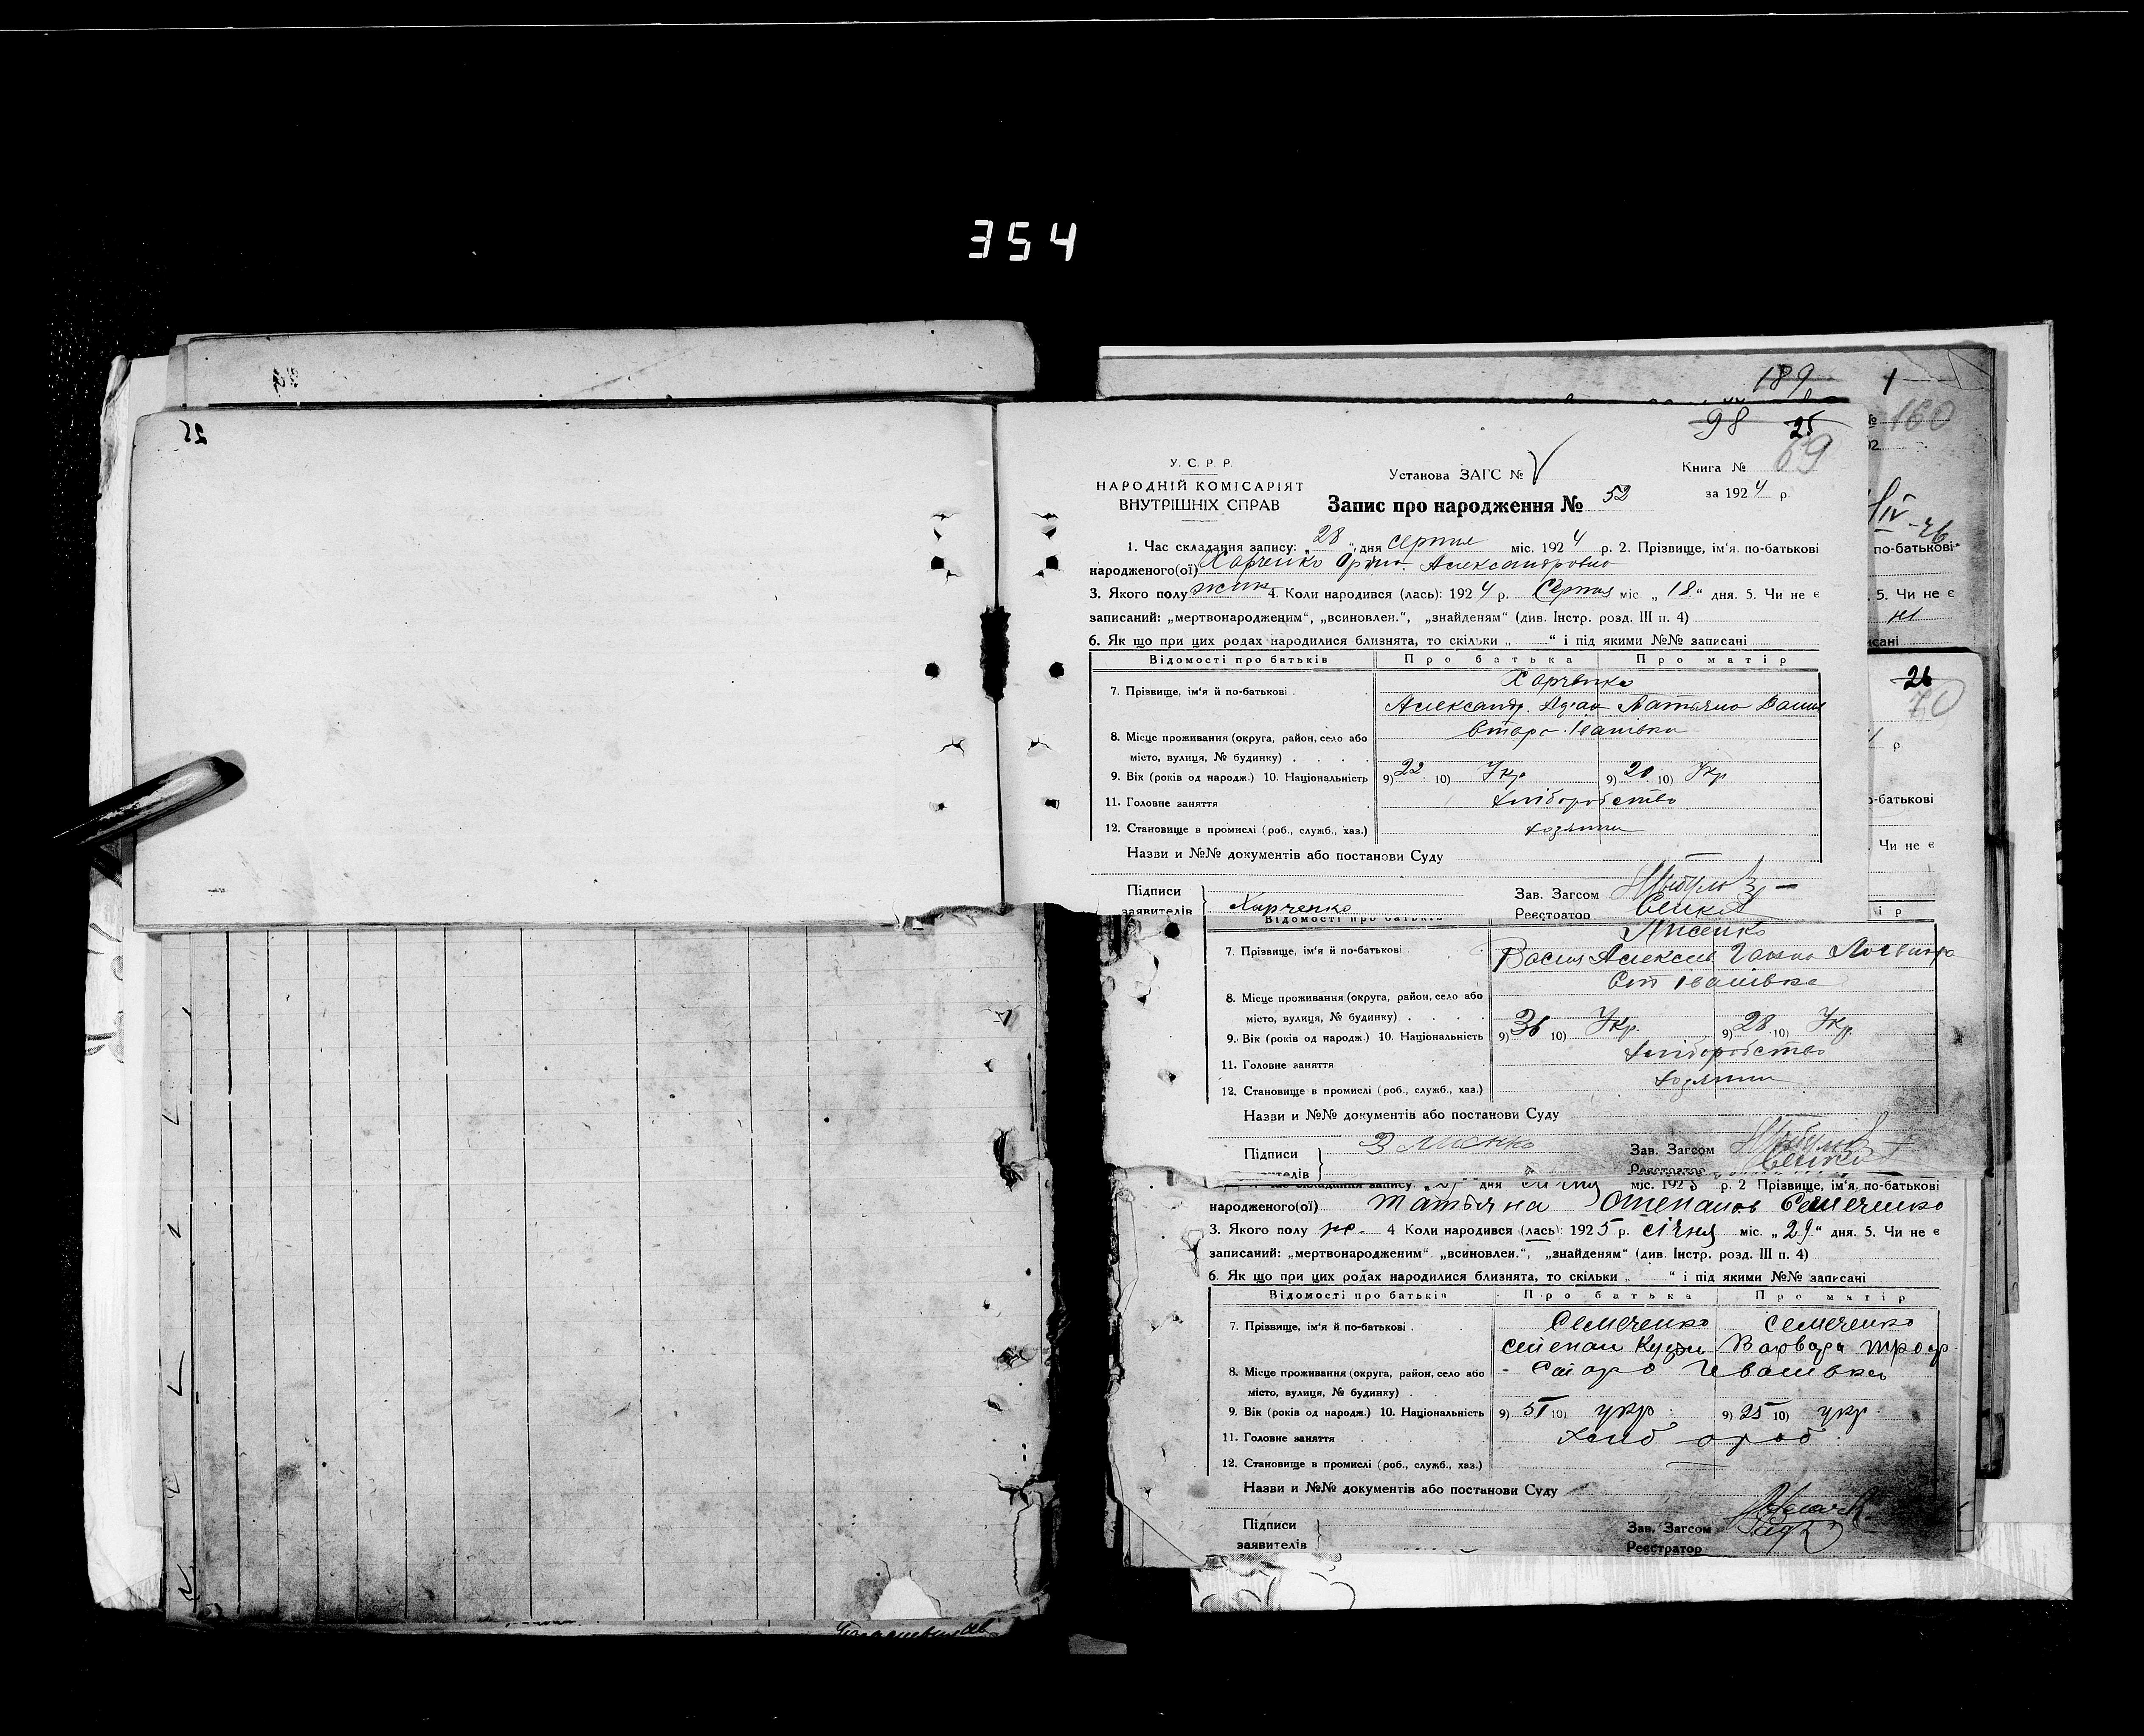 354
189
1
160
98
25
69
У. С. Р. Р.
НАРОДНІЙ КОМІСАРІЯТ
ВНУТРІШНІХ СПРАВ
Установа ЗАГС № V
Книга №
Запис про народження № 52
за 1924 р.
1. Час складання запису: „28“ дня серпня міс. 1924 р. 2. Прізвище, ім‘я, по-батькові
народженого(ої) Харченко Александровна
3. Якого полу жін 4. Коли народився (лась): 1924 р. Серпня міс „18“ дня. 5. Чи не є
записаний: „мертвонародженим“, „всиновлен.“, „знайденям“ (див. Інстр. розд. III п. 4)
6. Як що при цих родах народилися близнята, то скільки „ “ і під якими №№ записані
Відомості про батьків Про батька Про матір
7. Прізвище, ім‘я й по-батькові Харченко
Александр. Татьяна Васил
8. Місце проживання (округа, район, село або Старо-Іванівка
місто, вулиця, № будинку)
9. Вік (років од народж.) 10. Національність 9) 22 10) Укр. 9) 20 10) Укр
11. Головне заняття хліборобство
12. Становище в промислі (роб., служб., хаз.) хозяіни
Назви и №№ документів або постанови Суду
Підписи
заявителів Харченко
Зав. Загсом
Реєстратор
по-батькові
5. Чи не є
ні
исані
26
70
р
о-батькові
Чи не є
ір
Відомості про батьків
Лисенко
7. Прізвище, ім‘я й по-батькові Василь Алексеев Ганна
8. Місце проживання (округа, район, село або Ст Іванівка
місто, вулиця, № будинку)
9. Вік (років од народж.) 10. Національність 9) 36 10) Укр. 9) 28 10) Укр.
11. Головне заняття хліборобство
12. Становище в промислі (роб., служб., хаз.) хозяіни
Назви и №№ документів або постанови Суду
Підписи
телів
Зав. Загсом
Реєстратор
Час складання запису: дня січня міс. 1925 р. 2 Прізвище, ім‘я, по-батькові
народженого(ої) Татьяна Степанов Семеченко
3. Якого полу ж. 4 Коли народився (лась): 1925 р. січня міс. „29“ дня. 5. Чи не є
записаний: „мертвонародженим“ „всиновлен.“, „знайденям“ (див. Інстр. розд. III п. 4)
6. Як що при цих родах народилися близнята, то скільки „ “ і під якими №№ записані
Відомості про батьків Про батька Про матір
7. Прізвище, ім‘я й по-батькові Семеченко Семеченко
Степан Кузьм Варвара Троф
8. Місце проживання (округа, район, село або Старо Ивановка
місто, вулиця, № будинку)
9. Вік (років од народж.) 10. Національність 9) 51 10) укр 9) 25 10) укр
11. Головне заняття хлібороб
12. Становище в промислі (роб., служб., хаз.)
Назви и №№ документів або постанови Суду
Підписи
заявителів
Зав. Загсом
Реєстратор